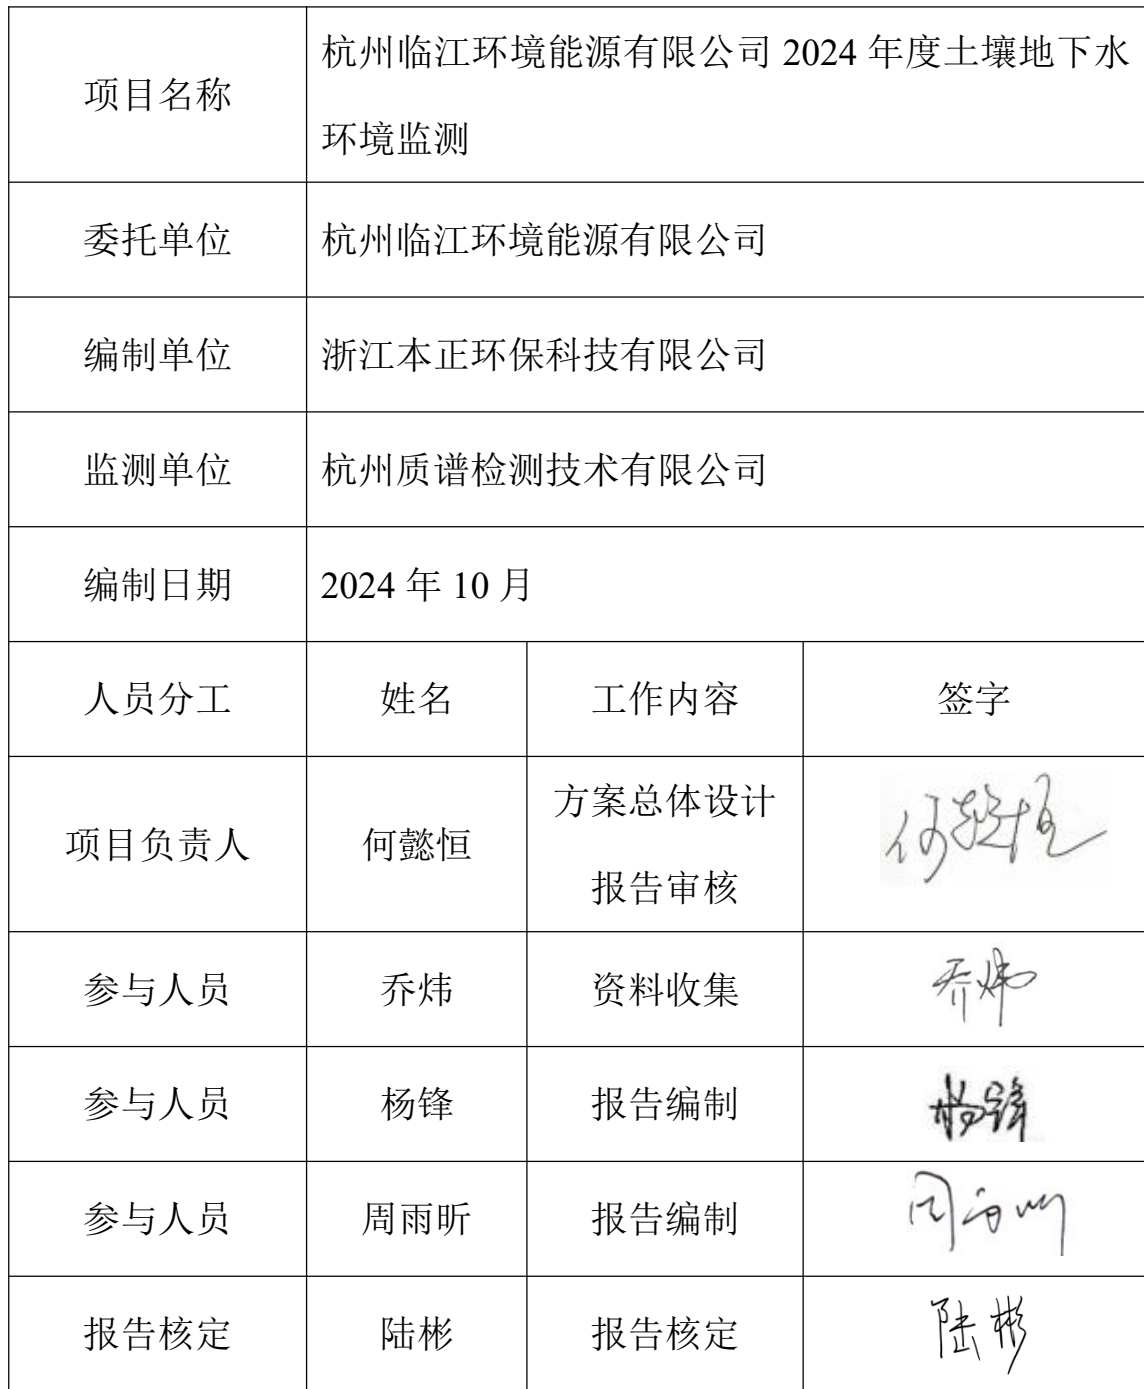 项目名称
杭州临江环境能源有限公司 2024 年度土壤地下水
环境监测
委托单位
杭州临江环境能源有限公司
编制单位
浙江本正环保科技有限公司
监测单位
杭州质谱检测技术有限公司
编制日期
2024 年 10 月
人员分工 姓名 工作内容 签字
项目负责人 何懿恒 方案总体设计
报告审核
何懿恒
参与人员 乔炜 资料收集 乔炜
参与人员 杨锋 报告编制 杨锋
参与人员 周雨昕 报告编制 周雨昕
报告核定 陆彬 报告核定 陆彬